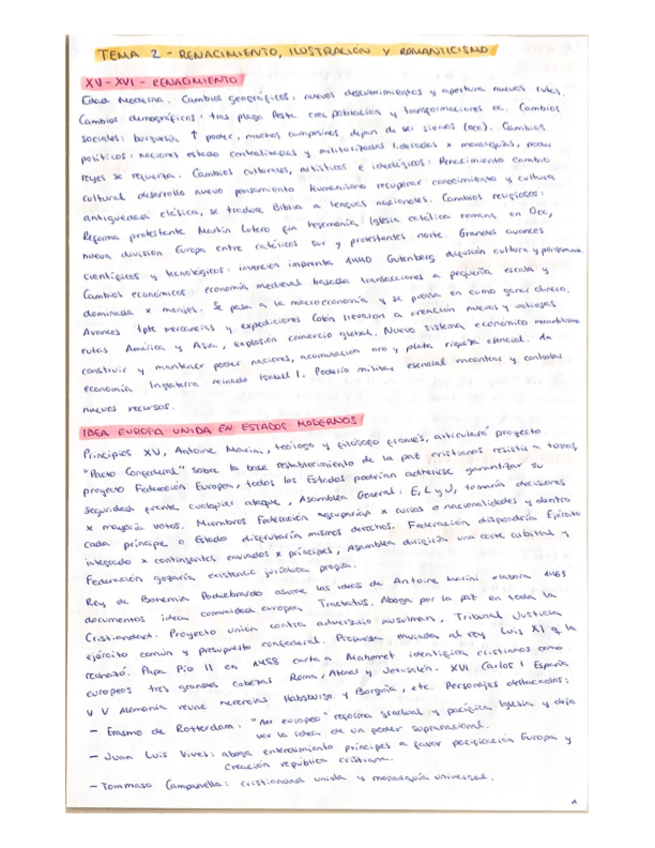 TEMA 2 - RENACIMIENTO, ILUSTRACIÓN Y ROMANTICISMO
XV - XVI - RENACIMIENTO
Edad Moderna. Cambios geográficos: nuevos descubrimientos y apertura nuevas rutas.
Cambios demográficos: tras plaga Peste crec población y transformaciones ec. Cambios
sociales: burguesía ↑ poder, muchos campesinos dejan de ser siervos (occ). Cambios
políticos: naciones estado centralizadas y militarizadas lideradas x monarquías, poder
reyes se refuerza. Cambios culturales, artísticos e ideológicos: Renacimiento cambio
cultural desarrollo nuevo pensamiento Humanismo recuperar conocimiento y cultura
antigüedad clásica, se traduce Biblia a lenguas nacionales. Cambios religiosos:
Reforma protestante Martín Lutero fin hegemonía Iglesia católica romana en Occ,
nueva división Europa entre católicos sur y protestantes norte. Grandes avances
científicos y tecnológicos: invención imprenta 1440 Gutenberg difusión cultura y
Cambios económicos: economía medieval basada transacciones a pequeña escala y
dominada x monjes. Se pasa a la macroeconomía y se piensa en cómo ganar dinero.
Avances tpte mercancías y expediciones Colón llevaron a creación nuevas y valiosas
rutas América y Asia, explosión comercio global. Nuevo sistema económico mercantilismo
construir y mantener poder naciones, acumulación oro y plata riqueza esencial.
economía Inglaterra reinado Isabel I. Poderío militar esencial encontrar y controlar
nuevos recursos.
IDEA EUROPA UNIDA EN ESTADOS MODERNOS
Principios XV, Antoine Marini, teólogo y filósofo francés, articulará proyecto
"Pacto Confederal" sobre la base restablecimiento de la paz cristianos resistir a turcos,
proyecto Federación Europea, todos los Estados podrían adherirse garantizar su
seguridad frente cualquier ataque, Asamblea General: E, L y J, tomaría decisiones
x mayoría votos. Miembros Federación agruparían x curias o nacionalidades y dentro
cada príncipe o Estado disfrutaría mismos derechos. Federación dispondría Ejército
integrado x contingentes enviados x príncipes, Asamblea dirigiría una corte arbitral y
Federación gozaría existencia jurídica propia.
Rey de Bohemia Podiebrando asume las ideas de Antoine Marini elabora 1463
documentos idea comunidad europea Tractatus. Aboga por la paz en toda la
Cristiandad. Proyecto unión contra adversario musulmán, Tribunal Justicia
ejército común y presupuesto confederal. Propuesta enviada al rey Luis XI q la
rechazó. Papa Pío II en 1458 carta a Mahomet identifica cristianos como
europeos tres grandes cabezas Roma, Atenas y Jerusalén. XVI Carlos I España
y V Alemania reune herencias Habsburgo y Borgoña, etc. Personajes destacados:
- Erasmo de Rotterdam: "Ser europeo" reforma gradual y pacífica Iglesia y deja
ver la idea de un poder supranacional.
- Juan Luis Vives: aboga entendimiento príncipes a favor pacificación Europa y
creación república cristiana.
- Tommaso Campanella: cristiandad unida y monarquía universal.